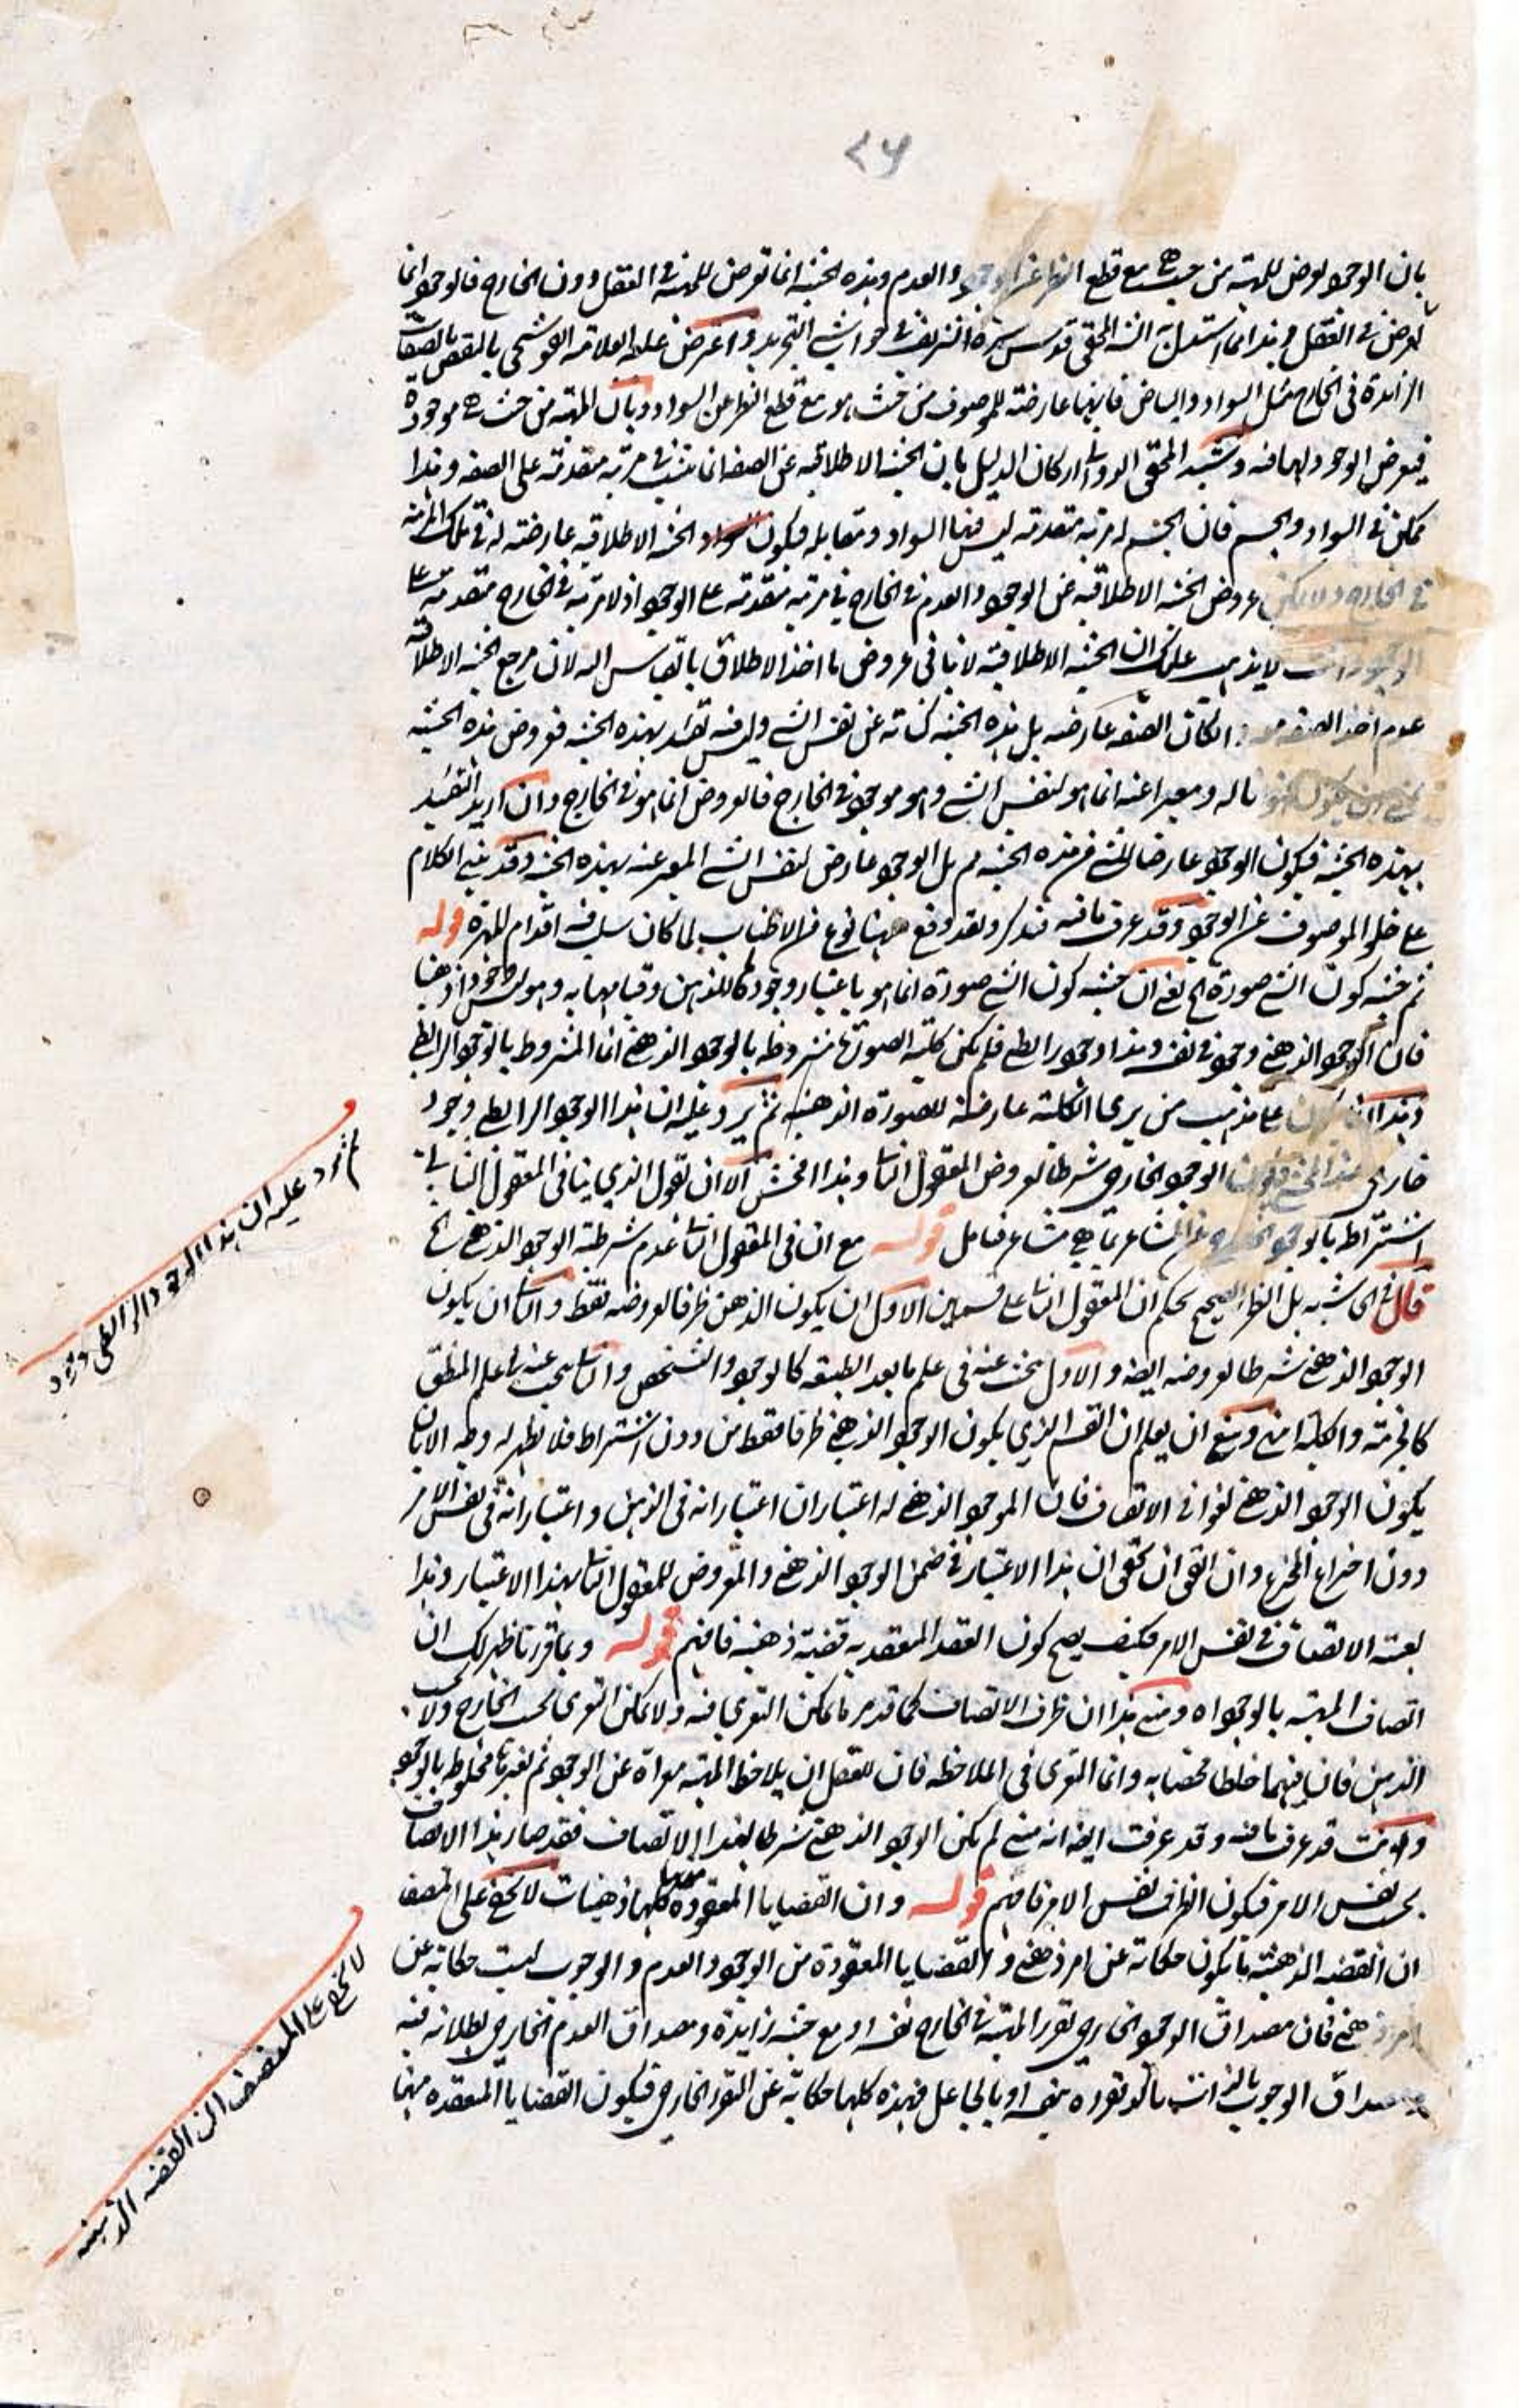 ٢٦
بان الوجود يعرض للمهية من حيث هي مع قطع النظر عن الوجود والعدم وهذه الحيثية انما تعرض للمهية في العقل دون الخارج فالوجود انما
يعرض في العقل وهذا ما استدل به السيد المحقق قدس سره الشريف في حواشي التجريد واعترض عليه العلامة القوشجي بالنقض بالصفات
الزائدة في الخارج مثل السواد والبياض فانهما عارضة للموصوف من حيث هو مع قطع النظر عن السواد وبان المهية من حيث هي موجودة
فيعرض الوجود لها فيه وتشييد المحقق الدواني اركان الدليل بان الحيثية الاطلاقية عن الصفة انما تثبت في مرتبة متقدمة على الصفة وهذا
ممكن في السواد والجسم فان الجسم له مرتبة متقدمة ليس فيها السواد ومقابله فيكون الحيثية الاطلاقية عارضة له في تلك المرتبة
في الخارج ولا يمكن عروض الحيثية الاطلاقية عن الوجود والعدم في الخارج في مرتبة متقدمة على الوجود اذ لا مرتبة في الخارج متقدمة على
الوجود لا يذهب عليك ان الحيثية الاطلاقية لا تنافي عروض ما اخذ الاطلاق بالقياس اليه لان مرجع الحيثية الاطلاقية
عدم اخذ الصفة وان كان الصفة عارضة بل هذه الحيثية كناية عن نفس الشي وليس فيه تقييد بهذه الحيثية فعروض هذه الحيثية
ناله ومعبرا عنه انما هو لنفس الشي وهو موجود في الخارج فالعروض انما هو في الخارج وان اريد التقييد
بهذه الحيثية فيكون الوجود عارضا للشي من هذه الحيثية مم بل الوجود عارض لنفس الشي المعبر عنه بهذه الحيثية وقد بني الكلام
على خلو الموصوف عن الوجود وقد عرف ما فيه فتذكر ولقد وقع ههنا نوع من الاطناب لما كان سلب فيه اقدام المهرة قوله
ثم حيثية كون الشي صورة الخ يعني ان حيثية كون الشي صورة انما هو باعتبار وجودها للذهن وقيامها به وهو
فان الوجود الذهني وجود في نفسه وهذا وجود رابطي فلم يكن كلية الصورة مشروطة بالوجود الذهني انما المشروط بالوجود الرابطي
وهذا على مذهب من يرى الكلية عارضة للصورة الذهنية ثم يرد عليه ان هذا الوجود الرابطي وجود
خارجي الوجود الخارجي شرطا لعروض المعقول الثاني وهذا افحش الا ان نقول الذي ينافي المعقول الثاني
اشتراط بالوجود الخارجي عن المشاعر بما هي مشاعر فتامل قوله مع ان في المعقول الثاني عدم شرطية الوجود الذهني الخ
قال في الحاشية بل النظر الصحيح يحكم ان المعقول الثاني على قسمين الاول ان يكون الذهن ظرفا لعروضه فقط والثاني ان يكون
الوجود الذهني شرطا لعروضه ايضا والاول يبحث عنه في علم ما بعد الطبيعة كالوجود والتشخص والثاني يبحث عنه في علم المنطق
كالجزئية والكلية انتهى وينبغي ان يعلم ان القسم الذي يكون الوجود الذهني ظرفا فقط من دون اشتراط فلا يظهر له وجه الا بان
يكون الوجود الذهني لغوا في الاتصاف فان الموجود الذهني له اعتباران اعتبار انه في الذهن واعتبار انه في نفس الامر
دون اختراع المخترع وان اتفق ان تحقق ان هذا الاعتبار في ضمن الوجود الذهني والمعروض للمعقول الثاني بهذا الاعتبار وهذا
بعينه الاتصاف في نفس الامر فكيف يصح كون العقد المعقد به قضية ذهنية فافهم قوله وبما قررنا ظهر لك ان
اتصاف المهية بالوجود اه ومبنى هذا ان ظرف الاتصاف كما قد مر ما يمكن التعري فيه ولا يمكن التعري بحسب الخارج ولا بحسب
الذهن فان فيهما خلطا محضا به وانما التعري في الملاحظة فان للعقل ان يلاحظ المهية معراة عن الوجود ثم لغيرها مخلوطة بالوجود
وانت قد عرفت ما فيه وقد عرفت ايضا انه متى لم يكن الوجود الذهني شرطا لهذا الاتصاف فقد صار هذا الاتصاف
بحسب نفس الامر فيكون الظرف نفس الامر فافهم قوله وان القضايا المعقودة منها كلها ذهنيات لا يخفى على المنصف
ان القضية الذهنية ما يكون حكاية عن امر ذهني والقضايا المعقودة من الوجود والعدم والوجوب ليست حكاية عن
امر ذهني فان مصداق الوجود الخارجي تقرر المهية في الخارج بنفسه او مع حيثية زايدة ومصداق العدم الخارجي بطلانه فيه
ومصداق الوجوب بالذات تاكد تقرره بنفسه او بالجاعل فهذه كلها حكاية عن التقرر الخارجي فيكون القضايا المنعقدة منها
ثم يرد عليه ان هذا الوجود الرابطي وجود
لا يخفى على المنصف ان القضية الذهنية